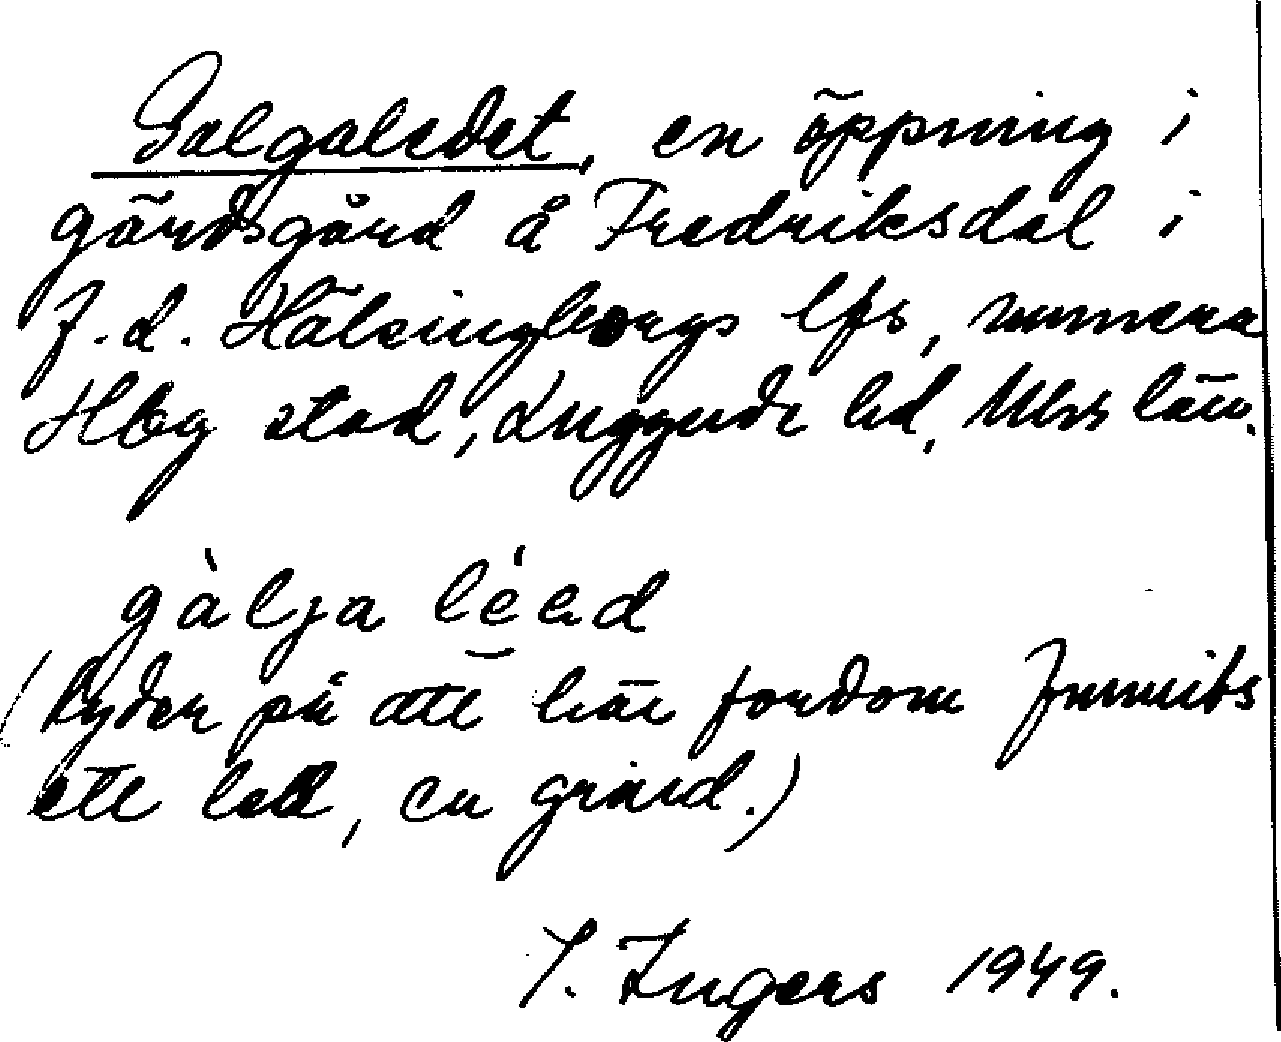 Galgaledet, en öppning i
gärdsgård å Fredriksdal i
f.d. Hälsingborgs lfs, numera
Hbg stad, Luggude hd, Mhs län.
gàlja léed
(Tyder på att här fordom funnits
ett led, en grind.)
I. Ingers 1949.